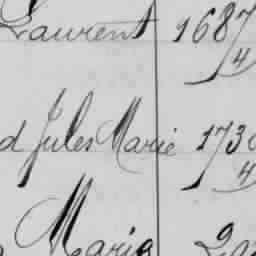 Laurent 1687/4
d Jules Marie 173
Maria